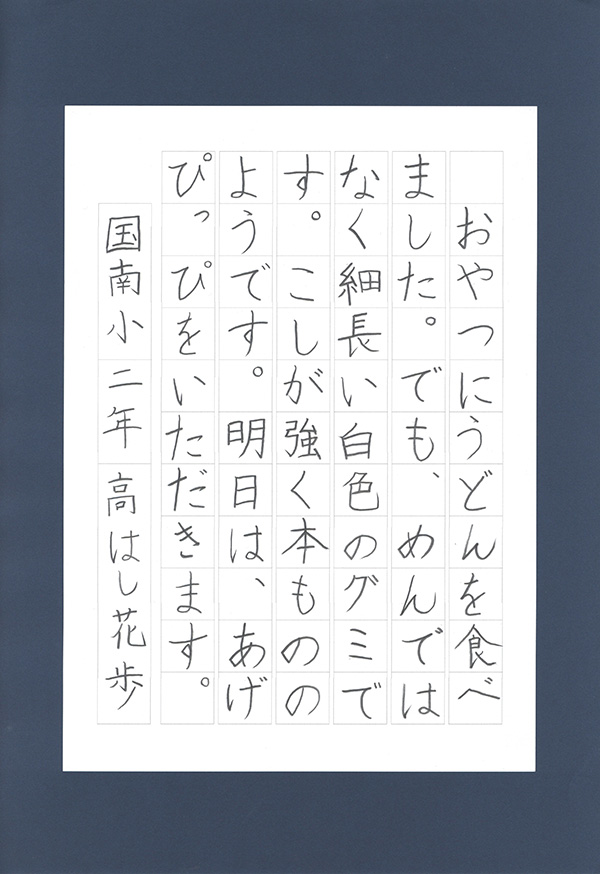 おやつにうどんを食べ
ました。でも、めんでは
なく細長い白色のグミで
す。こしが強く本ものの
ようです。明日は、あげ
ぴっぴをいただきます。
国南小二年高はし花歩